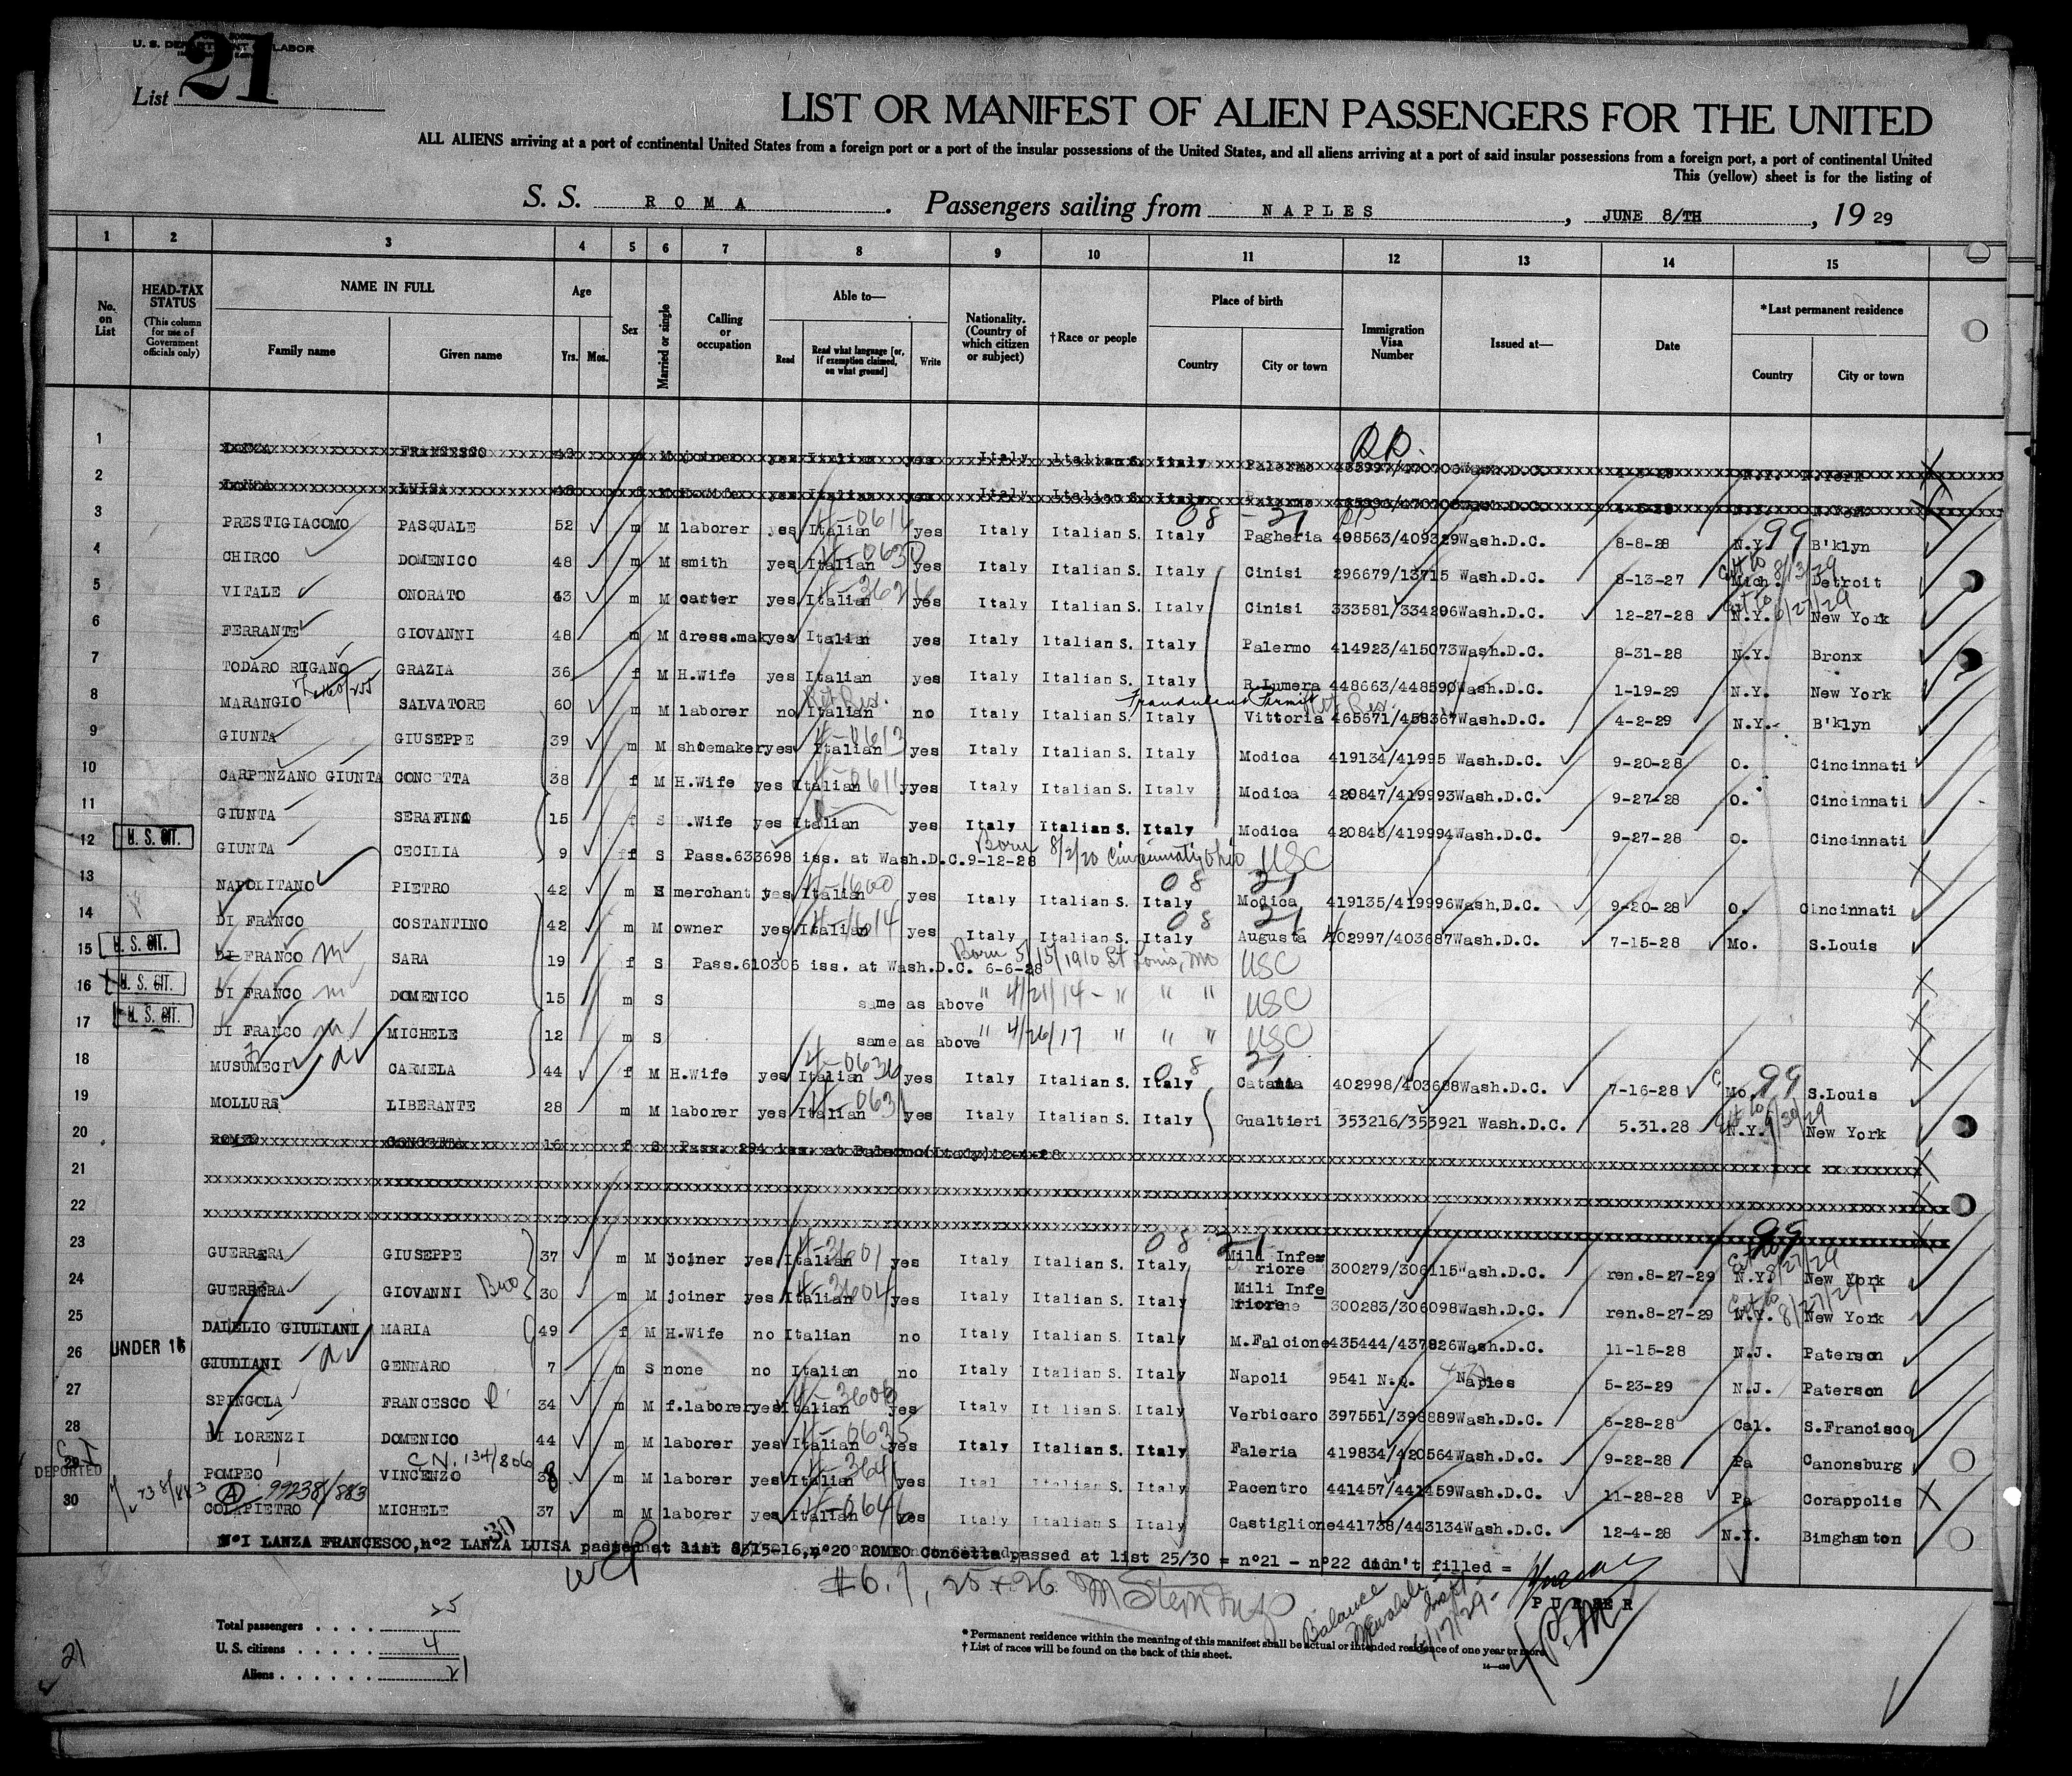 U. S. DEPARTMENT OF LABOR
List 21
LIST OR MANIFEST OF ALIEN PASSENGERS FOR THE UNITED
ALL ALIENS arriving at a port of continental United States from a foreign port or a port of the insular possessions of the United States, and all aliens arriving at a port of said insular possessions from a foreign port, a port of continental United
This (yellow) sheet is for the listing of
S. S. ROMA. Passengers sailing from NAPLES, JUNE 8/TH, 19 29
1 2 3 4 5 6 7 8 9 10 11 12 13 14 15
No. on List
HEAD-TAX STATUS (This column for use of Government officials only)
NAME IN FULL Family name Given name
Age Yrs. Mos.
Sex
Married or single
Calling or occupation
Able to— Read Read what language [or, if exemption claimed, on what ground] Write
Nationality. (Country of which citizen or subject)
†Race or people
Place of birth Country City or town
Immigration Visa Number
Issued at—
Date
*Last permanent residence Country City or town
1 LANZA FRANCESCO M joiner yes Italian yes Italy Italian S. Italy Palermo Wash.D.C. N.Y. N.York
2 LANZA LUISA yes Italian Italy Italian S. Italy Palermo Wash.D.C. N.York
3 PRESTIGIACOMO PASQUALE 52 m M laborer yes Italian yes Italy Italian S. Italy Pagheria 498563/409329 Wash.D.C. 8-8-28 N.Y. B'klyn
4 CHIRCO DOMENICO 48 m M smith yes Italian yes Italy Italian S. Italy Cinisi 296679/13715 Wash.D.C. 8-13-27 Mich. Detroit
5 VITALE ONORATO 43 m M carter yes Italian yes Italy Italian S. Italy Cinisi 333581/334296 Wash.D.C. 12-27-28 N.Y. New York
6 FERRANTE GIOVANNI 48 m M dress.mak yes Italian yes Italy Italian S. Italy Palermo 414923/415073 Wash.D.C. 8-31-28 N.Y. Bronx
7 TODARO RIGANO GRAZIA 36 f M H.Wife yes Italian yes Italy Italian S. Italy R.Lumera 448663/448590 Wash.D.C. 1-19-29 N.Y. New York
8 MARANGIO SALVATORE 60 m M laborer no Italian no Italy Italian S. Italy Vittoria 465671/458367 Wash.D.C. 4-2-29 N.Y. B'klyn
9 GIUNTA GIUSEPPE 39 m M shoemaker yes Italian yes Italy Italian S. Italy Modica 419134/41995 Wash.D.C. 9-20-28 O. Cincinnati
10 CARPENZANO GIUNTA CONCETTA 38 f M H.Wife yes Italian yes Italy Italian S. Italy Modica 420847/419993 Wash.D.C. 9-27-28 O. Cincinnati
11 GIUNTA SERAFINA 15 f S H.Wife yes Italian yes Italy Italian S. Italy Modica 420848/419994 Wash.D.C. 9-27-28 O. Cincinnati
12 U. S. CIT. GIUNTA CECILIA 9 f S Pass.633698 iss. at Wash.D.C. 9-12-28 Born 8/2/20 Cincinnati, Ohio USC
13 NAPOLITANO PIETRO 42 m M merchant yes Italian yes Italy Italian S. Italy Modica 419135/419996 Wash.D.C. 9-20-28 O. Cincinnati
14 DI FRANCO COSTANTINO 42 m M owner yes Italian yes Italy Italian S. Italy Augusta 402997/403687 Wash.D.C. 7-15-28 Mo. S.Louis
15 U. S. CIT. DI FRANCO SARA 19 f S Pass.610306 iss. at Wash.D.C. 6-6-28 Born 5/15/1910 St Louis, Mo USC
16 U. S. CIT. DI FRANCO DOMENICO 15 m S same as above " 4/21/14 - " " " USC
17 U. S. CIT. DI FRANCO MICHELE 12 m S same as above " 4/26/17 " " " USC
18 MUSUMECI CARMELA 44 f M H.Wife yes Italian yes Italy Italian S. Italy Catania 402998/403688 Wash.D.C. 7-16-28 Mo. S.Louis
19 MOLLURA LIBERANTE 28 m M laborer yes Italian yes Italy Italian S. Italy Gualtieri 353216/353921 Wash.D.C. 5.31.28 N.Y. New York
20 ROMEO CONCETTA 16 f S Pass. 294 iss. at Palermo(Italy) 12-4-28
21
22
23 GUERRERA GIUSEPPE 37 m M joiner yes Italian yes Italy Italian S. Italy Mili Inferiore 300279/306115 Wash.D.C. ren.8-27-29 N.Y. New York
24 GUERRERA GIOVANNI Bro 30 m M joiner yes Italian yes Italy Italian S. Italy Mili Inferiore 300283/306098 Wash.D.C. ren.8-27-29 N.Y. New York
25 DALELIO GIULIANI MARIA 49 f M H.Wife no Italian no Italy Italian S. Italy M.Falcione 435444/437826 Wash.D.C. 11-15-28 N.J. Paterson
26 UNDER 16 GIULIANI GENNARO 7 m S none no Italian no Italy Italian S. Italy Napoli 9541 N.Q. Naples 5-23-29 N.J. Paterson
27 SPINGOLA FRANCESCO 34 m M f.laborer yes Italian yes Italy Italian S. Italy Verbicaro 397551/398889 Wash.D.C. 6-28-28 Cal. S.Francisco
28 DI LORENZI DOMENICO 44 m M laborer yes Italian yes Italy Italian S. Italy Faleria 419834/420564 Wash.D.C. 9-22-28 Pa Canonsburg
C.N. 134/806
29 DEPORTED POMPEO VINCENZO 38 m M laborer yes Italian yes Italy Italian S. Italy Pacentro 441457/441459 Wash.D.C. 11-28-28 Pa Corappolis
A 99238/883
30 COLAPIETRO MICHELE 37 m M laborer yes Italian yes Italy Italian S. Italy Castiglione 441738/443134 Wash.D.C. 12-4-28 N.Y. Bimghamton
N°1 LANZA FRANCESCO, n°2 LANZA LUISA passed at list 15-16, n°20 ROMEO Concetta passed at list 25/30 = n°21 - n°22 didn't filled =
#6.7, 25 + 26. M Stern
PURSER
Balance
6/17/29
Total passengers . . . . 25
U. S. citizens . . . . . 4
Aliens . . . . . . 21
* Permanent residence within the meaning of this manifest shall be actual or intended residence of one year or more.
† List of races will be found on the back of this sheet.
21